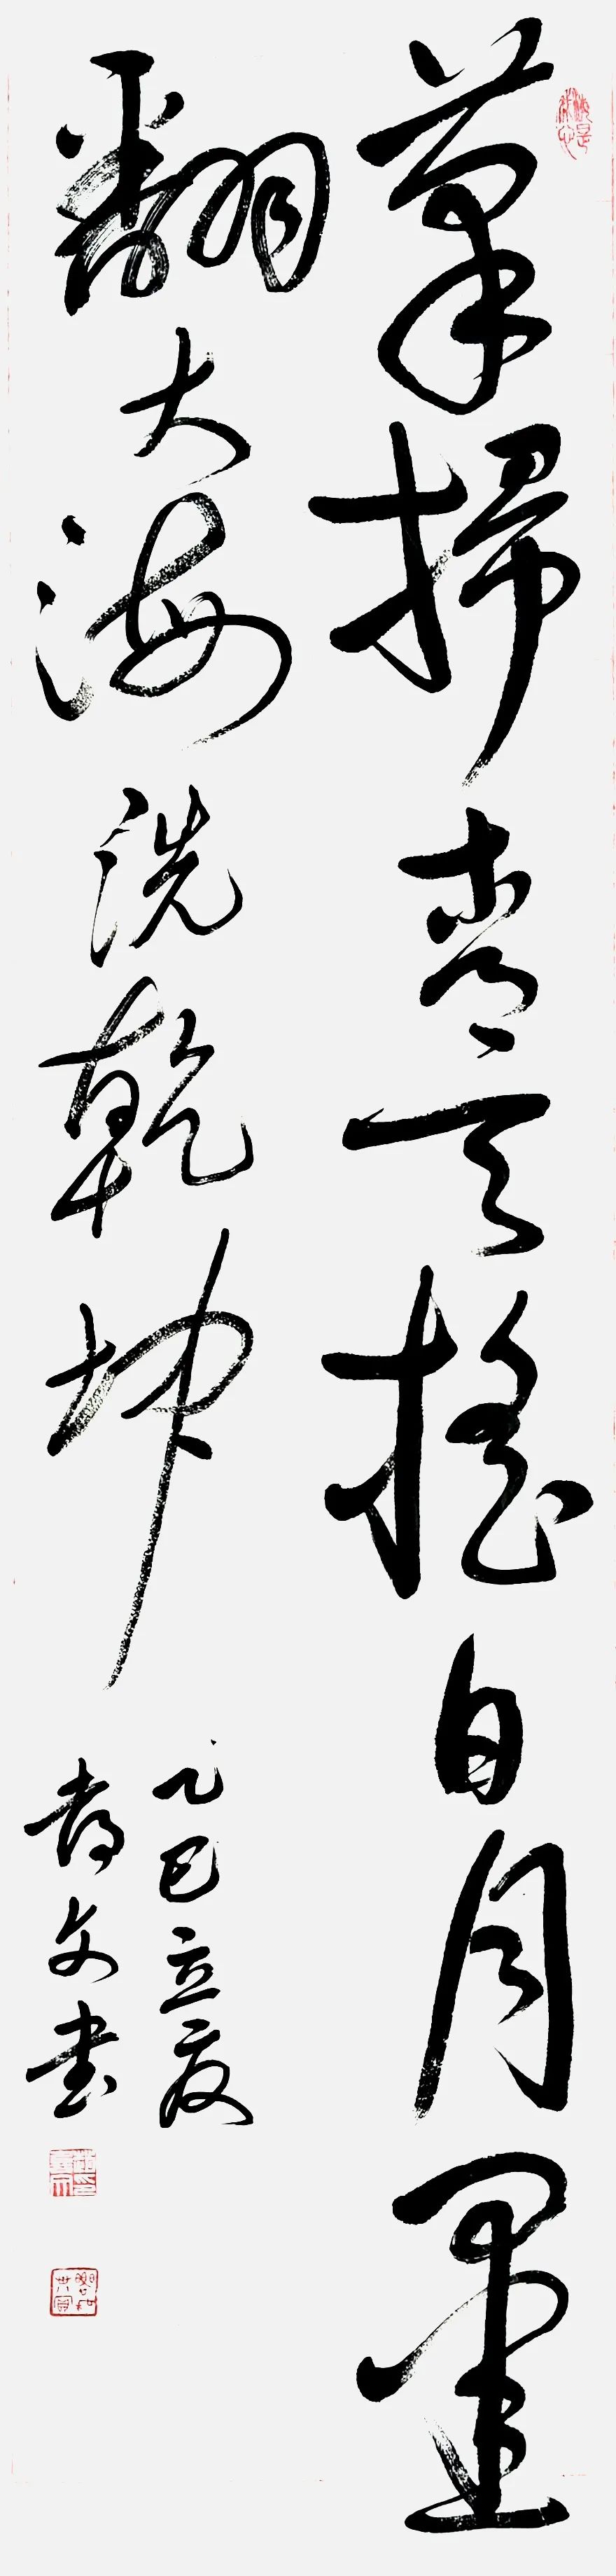 筆掃青天搖日月墨
翻大海洗乾坤
乙巳立夏
春文書